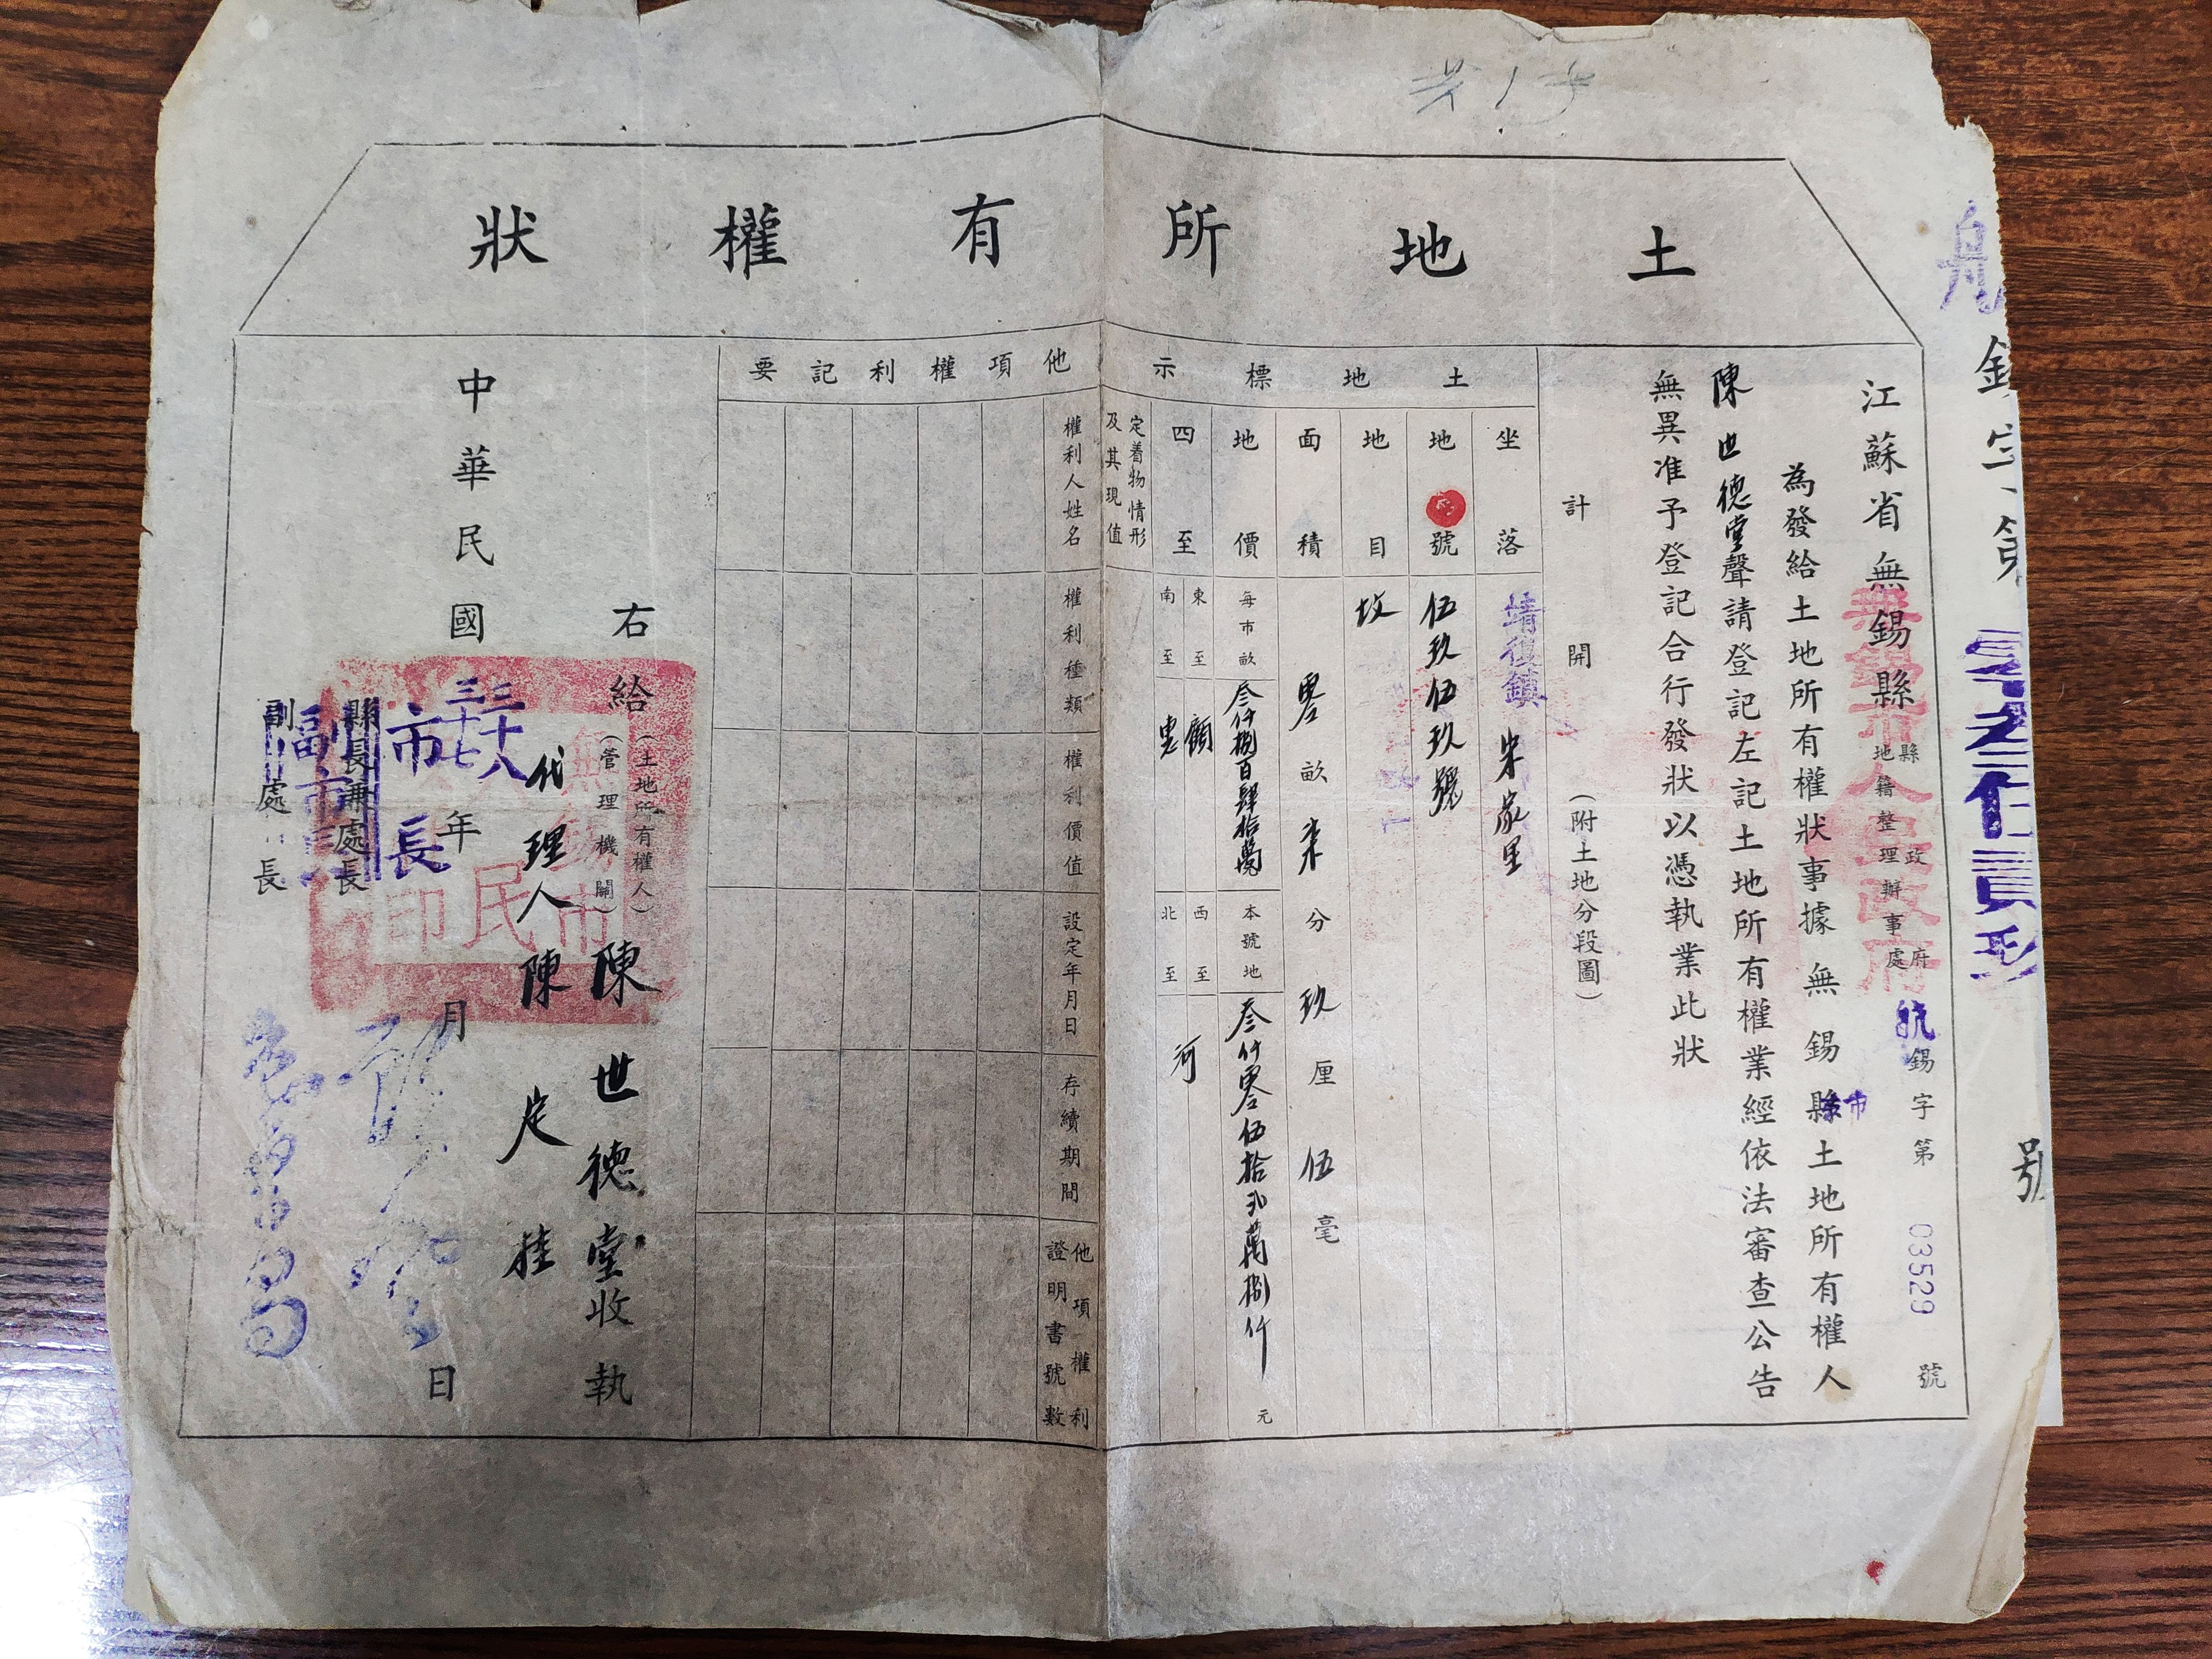 土地所有權狀
錫字第
號
江蘇省無錫縣
縣政府
地籍整理辦事處
無錫市人民政府
錫字第03529號
為發給土地所有權狀事據無錫縣土地所有權人
市
陳世德堂聲請登記左記土地所有權業經依法審查公告
無異准予登記合行發狀以憑執業此狀
計開(附土地分段圖)
土地標示
坐落
靖復鎮
朱家里
地號
伍玖伍玖號
地目
坟
面積
零畝柒分玖厘伍毫
地價
每市畝
叁仟捌百肆拾萬
本號地
叁仟零伍拾弍萬捌仟
元
四至
東至
顧
西至
河
南至
北至
定着物情形
及其現值
他項權利記要
權利人姓名
權利種類
權利價值
設定年月日
存續期間
他項權利
證明書號數
右給
(土地所有權人)
(管理機關)
陳世德堂收執
代理人陳定
中華民國
三十八
三十七
年
月
日
市長
縣長兼處長
副市長
副處長